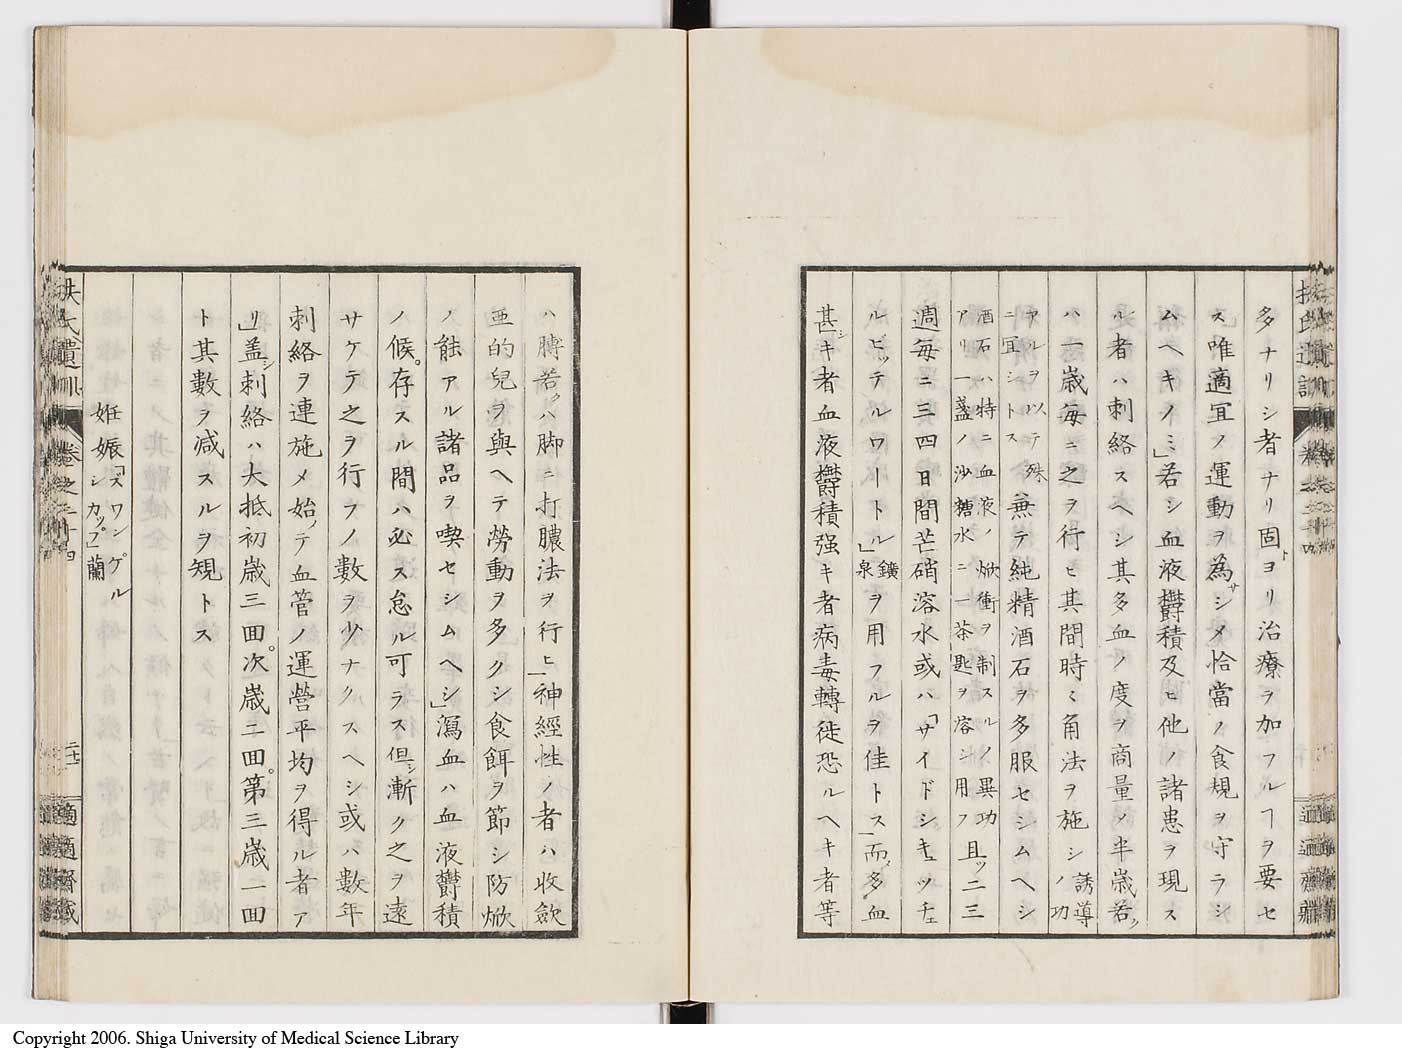 多ナリシ者ナリ固ヨリ治療ヲ加フルヿヲ要セ
ス唯適宜ノ運動ヲ為サシメ恰當ノ食規ヲ守ラシ
ムヘキノミ」若シ血液欝積及ヒ他ノ諸患ヲ現ス
ル者ハ刺絡スヘシ其多血ノ度ヲ商量ノ半歳若ク
ハ一歳毎ニ之ヲ行ヒ其間時々角法ヲ施シ誘導ノ功
アルヲ以テ殊ニ宜シトス兼テ純精酒石ヲ多服セシムヘシ
酒石ハ特ニ血液ノ焮衝ヲ制スルノ異功アリ一盞ノ沙糖水ニ一茶匙ヲ溶シ用フ且ッ二三
週毎ニ三四日間芒硝溶水或ハ「サイドシキュッチェ
ルビッテルワートル」鑛泉ヲ用フルヲ佳トス」而ノ多血
甚シキ者血液欝積强キ者病毒轉徙恐ルヘキ者等
扶氏遺訓 卷之二十四 二十一 適適齋藏
ハ膊若クハ脚ニ打膿法ヲ行ヒ」神經性ノ者ハ收斂
亜的兒ヲ與ヘテ勞動ヲ多クシ食餌ヲ節シ防焮
ノ能アル諸品ヲ喫セシムヘシ」瀉血ハ血液欝積
ノ候存スル間ハ必ス怠ル可ラス但シ漸ク之ヲ遠
サケテ之ヲ行フノ數ヲ少ナクスヘシ或ハ數年
刺絡ヲ連施メ始メテ血管ノ運營平均ヲ得ル者ア
リ」盖シ刺絡ハ大抵初歳三回次歳二回第三歳一回
ト其數ヲ减スルヲ規トス
妊娠「ズワンゲルシカップ」蘭